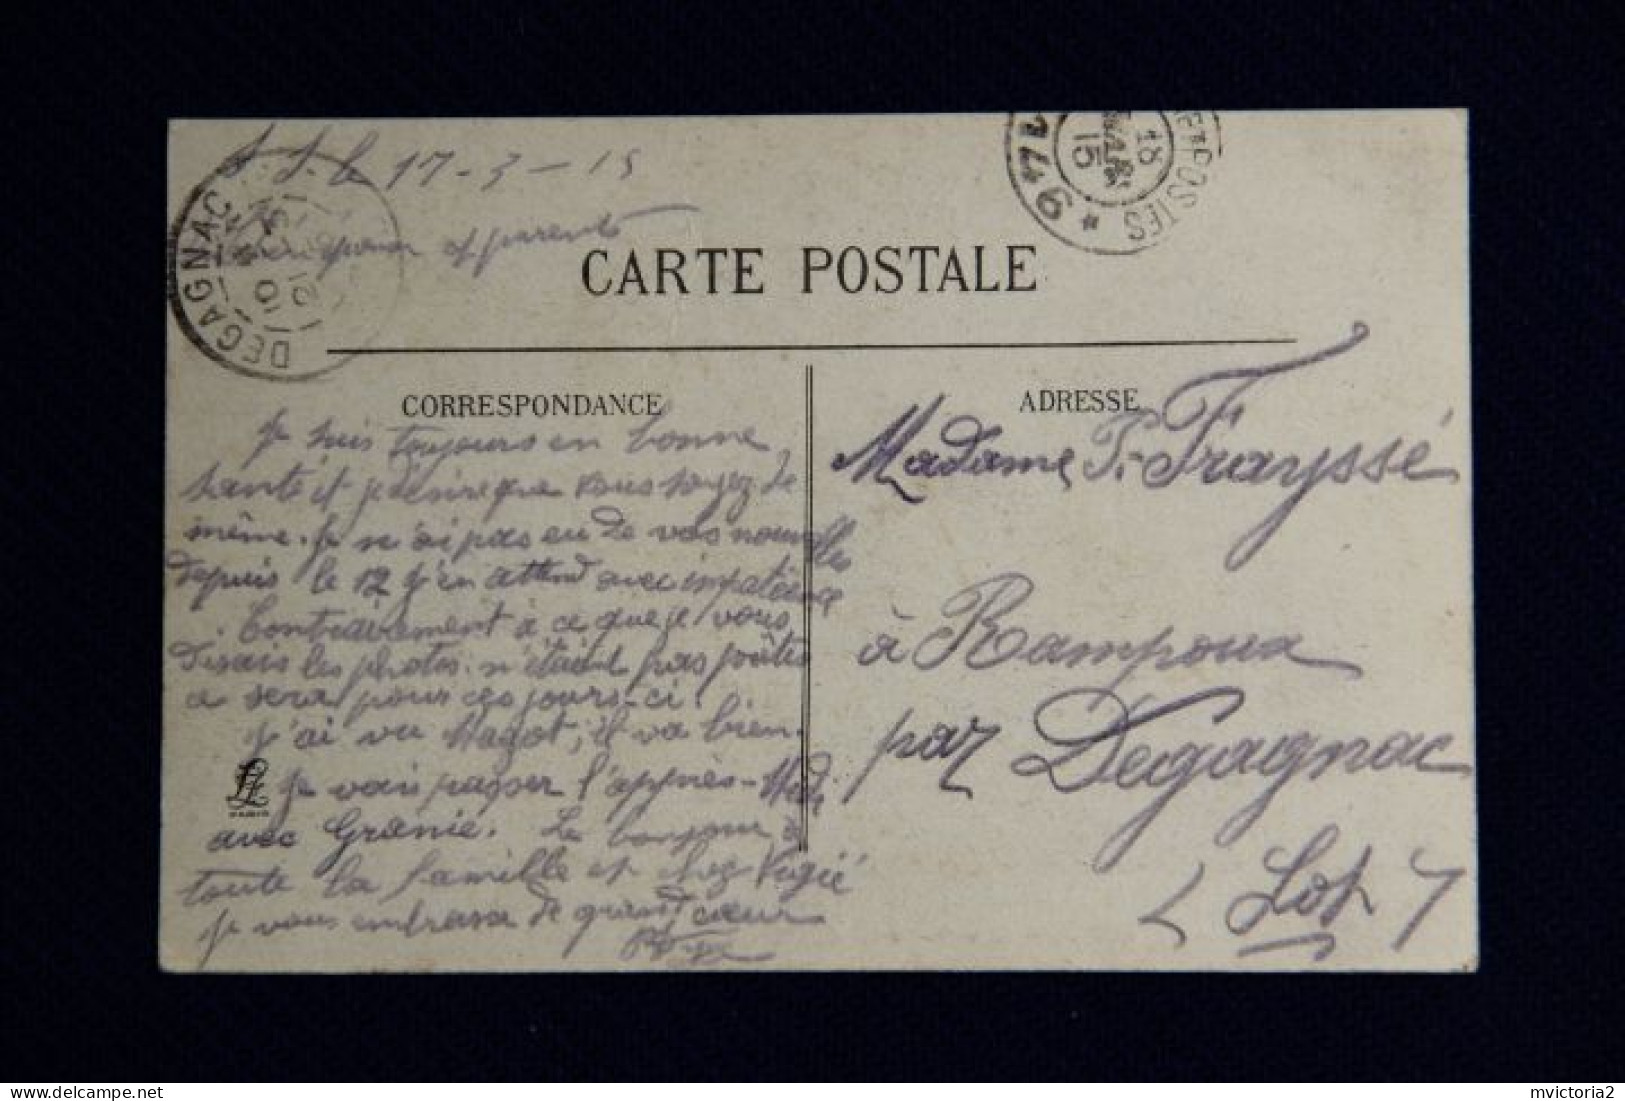 S. S. le 17-3-15
parents
DEGAGNAC
ET POSTES
18
MAR
15
CARTE POSTALE
CORRESPONDANCE
ADRESSE
Je suis toujours en bonne
santé et je désire que vous soyez de
même. Je n'ai pas eu de vos nouvelles
depuis le 12 j'en attend avec impatience
Contrairement à ce que je vous
disais les photos n'étaient pas prêtes
sera pour ces jours-ci.
J'ai vu Magot, il va bien.
Je vais passer l'après-Midi
avec Granié. Le bonjour à
toute la famille et chez Vigié
Je vous embrasse de grand cœur
PARIS
Madame P. Frayssé
à Rampoux
par Degagnac
(Lot)
mvictoria2